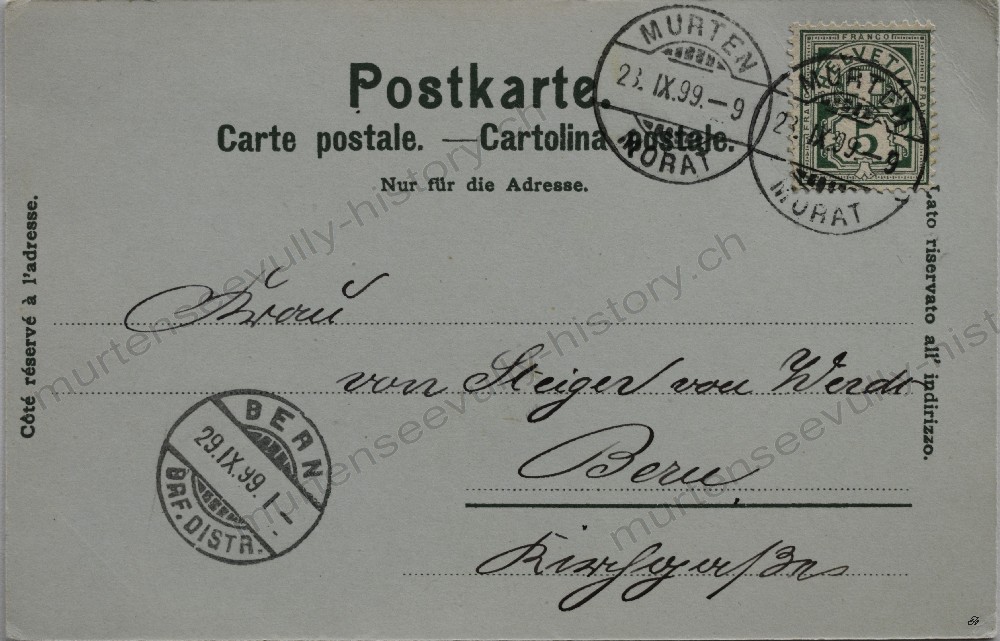 Postkarte.
Carte postale. — Cartolina postale.
Nur für die Adresse.
Côté réservé à l'adresse.
Lato riservato all' indirizzo.
MURTEN
23. IX. 99. – 9
MORAT
FRANCO
HELVETIA
5
MURTEN
23. IX. 99 – 9
MORAT
Frau
von Steiger von Werdt
Bern
Kirchgasse
BERN
29. IX. 99. I –
BRF. DISTR.
murtenseevully-history.ch
murtenseevully-history.ch
murtenseevully-history.ch